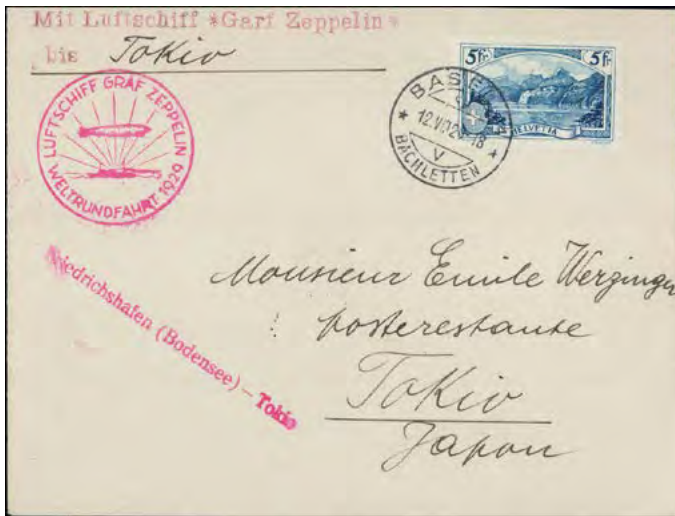 Mit Luftschiff *Garf Zeppelin*
bis Tokio
5 Fr. 5 Fr.
HELVETIA
BASEL
V
BACHLETTEN
LUFTSCHIFF GRAF ZEPPELIN
WELTRUNDFAHRT 1929
Friedrichshafen (Bodensee) – Tokio
Monsieur Emile Werzinger
posterestante
Tokio
Japon